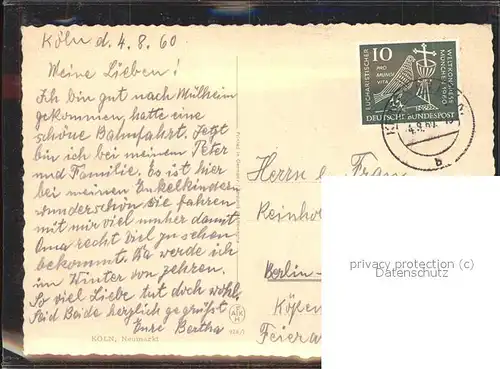 Köln d. 4.8.60
Meine Lieben!
Ich bin gut nach Mülheim
gekommen, hatte eine
schöne Bahnfahrt. Jetzt
bin ich bei meinem Peter
und Familie. Es ist hier
bei meinen Enkelkindern
wunderschön sie fahren
mit mir viel umher damit
Oma recht viel zu sehen
bekommt. Da werde ich
im Winter von zehren.
So viel Liebe tut doch wohl.
Seid Beide herzlich gegrüßt
Eure Bertha
KÖLN, Neumarkt
EUCHARISTISCHER
WELTKONGRESS
MÜNCHEN 1960
10
PRO
MUNDI
VITA
DEUTSCHE BUNDESPOST
4.8.60
b
Herrn u. Frau
Reinhol
Berlin-
Köpen
Feiera
privacy protection (c)
Datenschutz